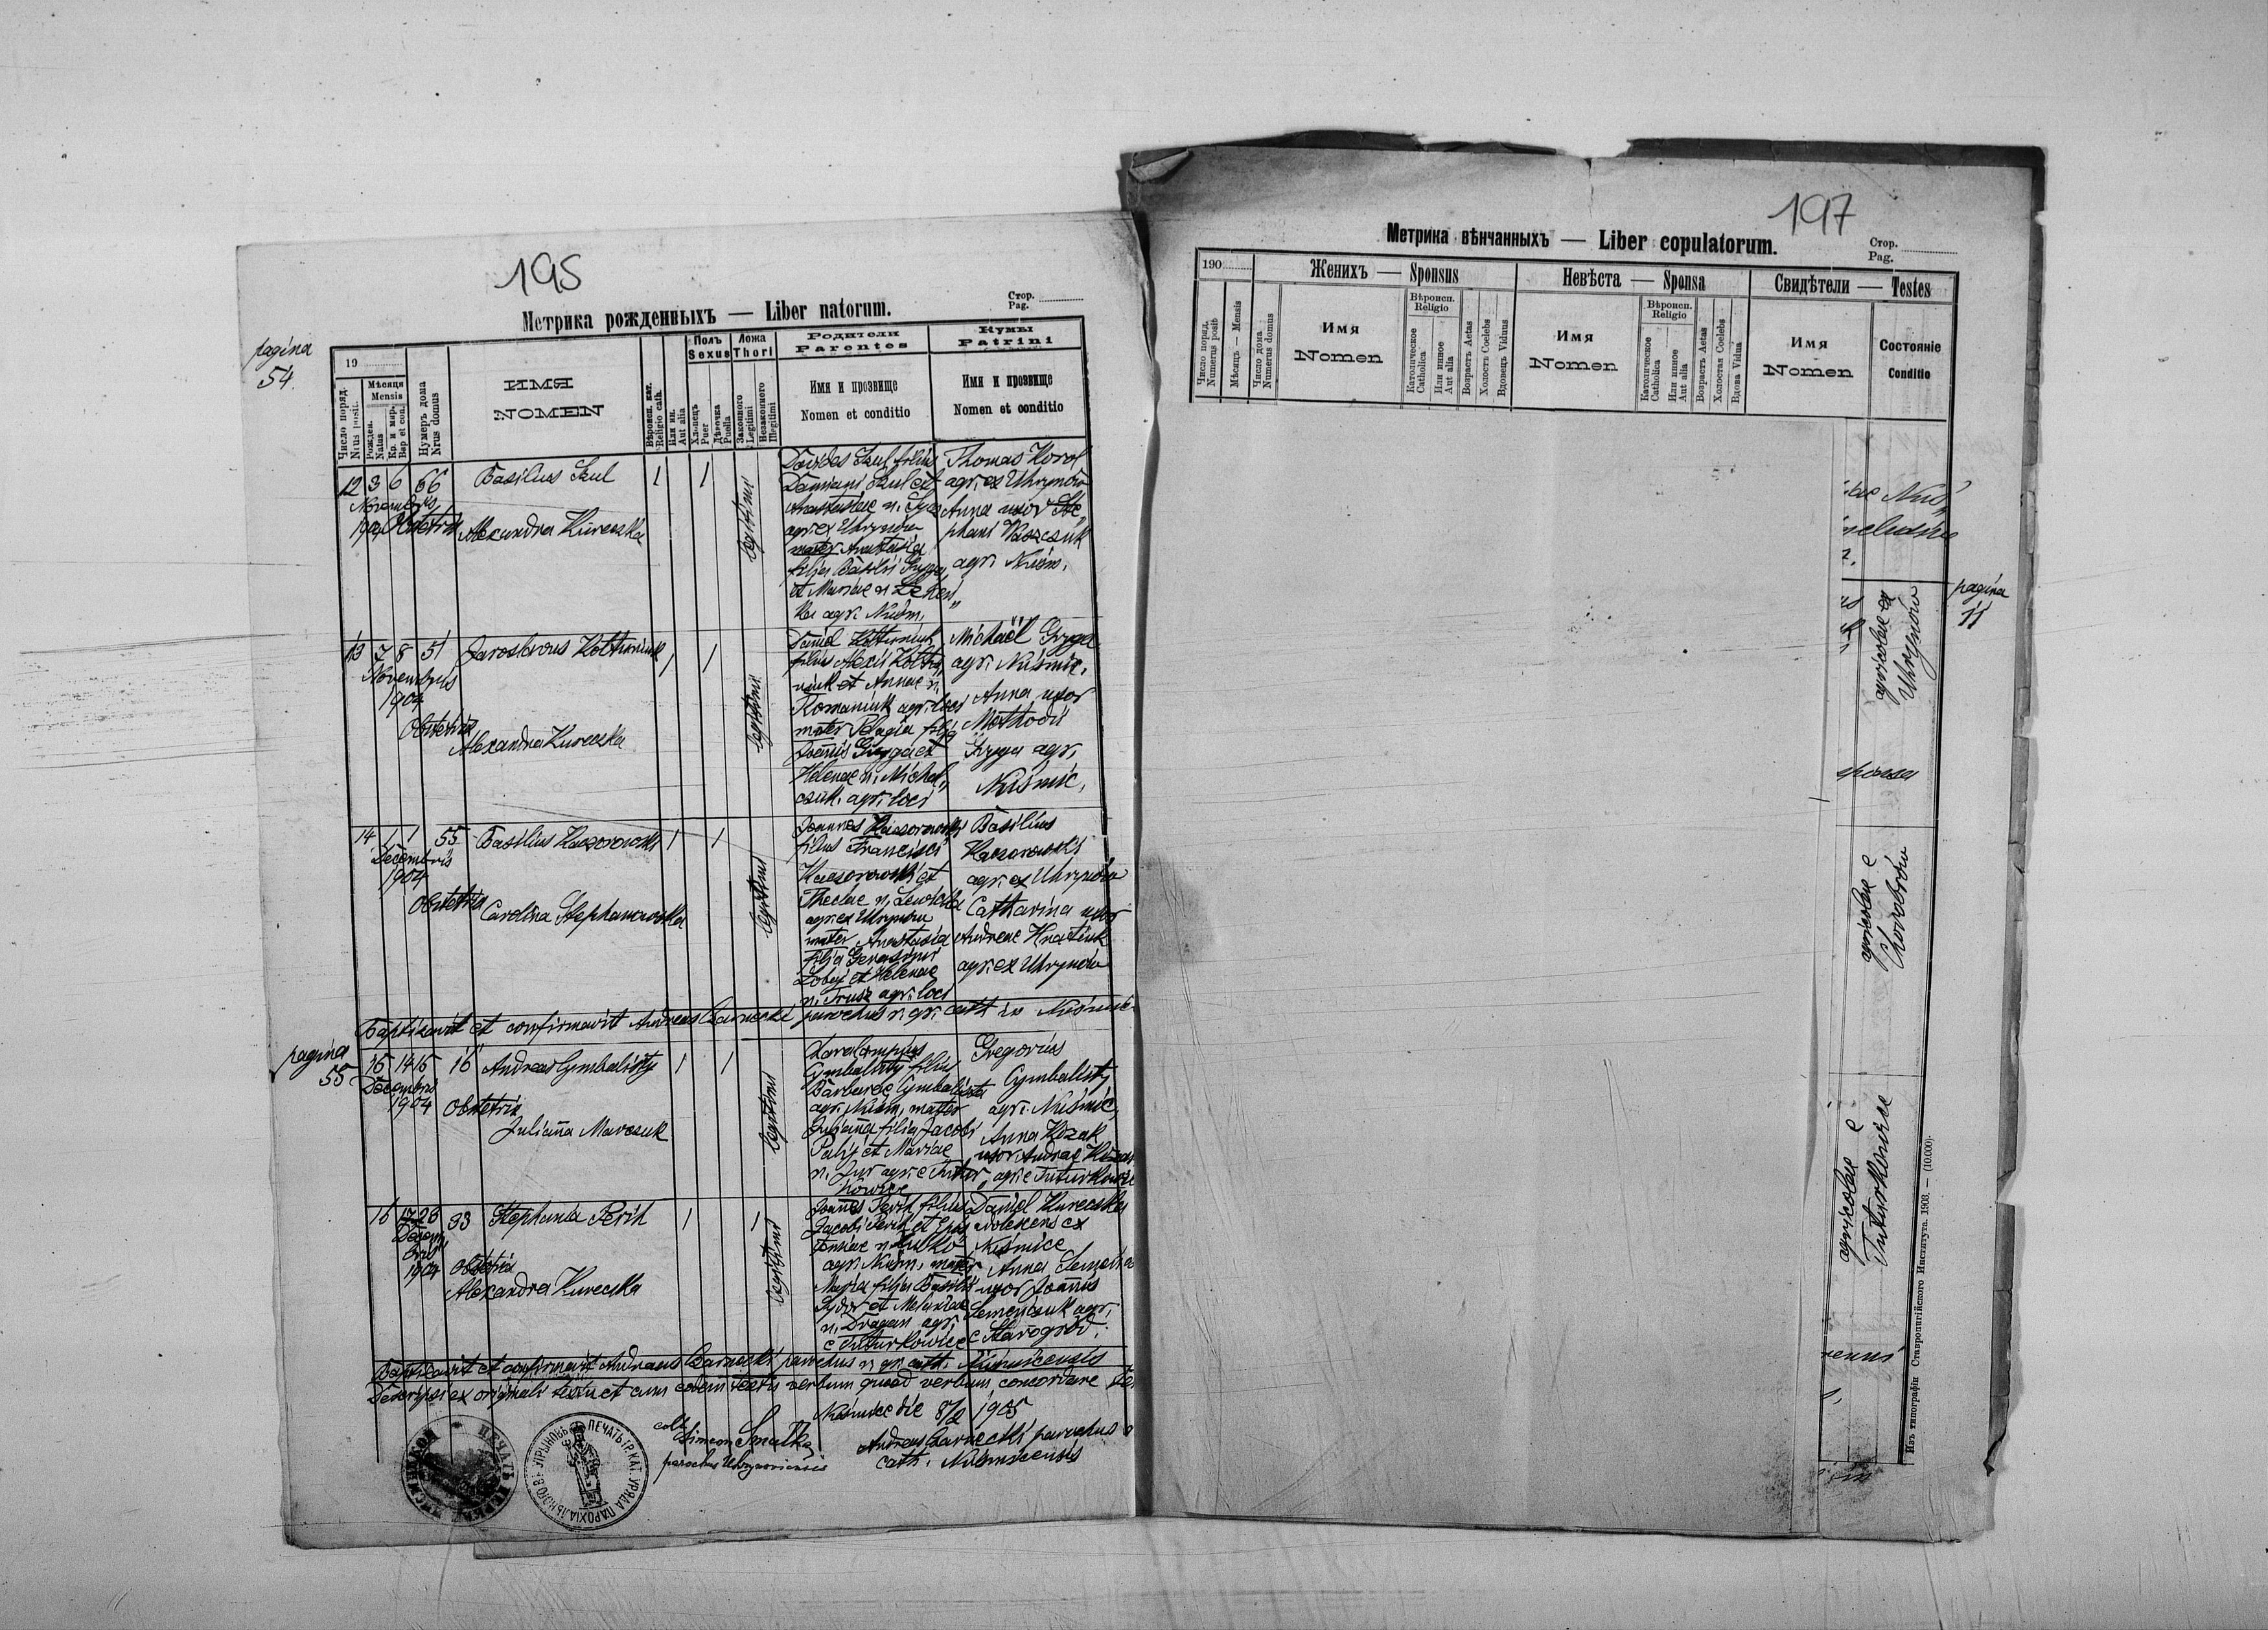 195
Метрика рожденныхъ — Liber natorum.
Стор.
Pag.
pagina
54.
19
Число поряд.
Nrus posit.
Мѣсяця
Mensis
Рожден.
Natus
Кр. и мир.
Bap et con.
Нумеръ дома
Nrus domus
ИМЯ
NOMEN
Вѣроисп. кат.
Religio cath.
Или ин.
Aut alia
Полъ
Sexus
Хлопецъ
Puer
Дѣвочка
Puella
Ложа
Thori
Законного
Legitimi
Незаконного
Illegitimi
Родители
Parentes
Имя и прозвище
Nomen et conditio
Кумы
Patrini
Имя и прозвище
Nomen et conditio
12 3 6 66 Basilius Szul 1 1
Novembris
1904 Obstetrix Alexandra Kureczka
legitimi
Damiani Szul et
agr. ex Uhrynów
mater Anastasia
filia Basilii Gryga
et Mariae n.
agr. Nuśm.
Thomas Korol
agr. ex Uhrynów
Anna uxor Ste„
phani Waszczuk
agr. Nuśm.
13 7 8 51 Jaroslavus Kottuniuk 1 1
Novembris
1904
Obstetrix
Alexandra Kureczka
legitimi
Daniel Kottuniuk
filius Alexii
niuk et Annae n.
Romaniuk agr. loci
mater Pelagia filia
Joannis Gryga et
Helenae n. Michal„
czuk agr. loci
Michaël Gryga
agr. Nuśmic.
Anna uxor
Methodii
Gryga agr.
Nuśmic.
14 1 1 55 Basilius Kaczorowski 1 1
Decembris
1904
Obstetrix Carolina Stephanowska
legitimi
Joannes Kaczorowski
filius Francisci
Kaczorowski et
Theclae n. Lewicka
agr. ex Uhrynów
mater Anastasia
filia Gerasimi
et Helenae
n. Trusz agr. loci
Basilius
Kaczorowski
agr. ex Uhrynów
Catharina uxor
Andreae Hnatiuk
agr. ex Uhrynów
Baptizavit et confirmavit Andreas Czarnecki parochus r. gr. cath in Nuśmice
pagina
55
15 14 15 16 Andreas Cymbalisty 1 1
Decembris
1904 Obstetrix
Juliana Marczuk
legitimi
Charalampius
Cymbalisty filius
Barbarae Cymbalista
agr. Nuśm. mater
Juliana filia Jacobi
Palij et Mariae
n. Jur agr. e Tutur„
kowice
Gregorius
Cymbalisty
agr. Nuśmic.
Anna Kozak
uxor Andreae Kozak
agr. e Tuturkowice
16 17 26 33 Stephania Perih 1 1
Decem
bris
1904 Obstetrix
Alexandra Kureczka
legitimi
Joannes Perih filius
Jacobi Perih et
agr. Nuśm. mater
Maria filia Basilii
et Melaniae
n. Dragan agr.
e Tuturkowice
Daniel Kureczka
adolescens ex
Nuśmice
Anna
uxor Joannis
Semeńczuk agr.
e Starogród.
Baptizavit et confirmavit Andreas Czarnecki parochus r. gr. cath. Nuśmicensis
Descripsi ex originali textu et cum eodem textu verbum quoad verbum concordare
Nuśmice die 8/2 1905
coll.
Simeon Smalko
parochus Uhrynoviensis
Andreas Czarnecki parochus
cath. Nuśmicensis
ПЕЧАТЬ ГР. КАТ. УРЯДА ПАРОХІАЛЬНОГО ВЪ УГРЫНОВѢ
197
Метрика вѣнчанныхъ — Liber copulatorum.
Стор.
Pag.
190
Число поряд.
Numerus posit.
Мѣсяцъ — Mensis
Число дома
Numerus domus
Женихъ — Sponsus
Имя
Nomen
Вѣроисп.
Religio
Католическое
Catholica
Или инное
Aut alia
Возрастъ Aetas
Холостъ Coelebs
Вдовецъ Viduus
Невѣста — Sponsa
Имя
Nomen
Вѣроисп.
Religio
Католическое
Catholica
Или инное
Aut alia
Возрастъ Aetas
Холостая Coelebs
Вдова Vidua
Свидѣтели — Testes
Имя
Nomen
Состояніе
Conditio
pagina
11
agricolae ex
Uhrynów
sponsa
agricolae e
Chorobrów
agricolae e
Tuturkowice
Изъ типографіи Ставропигійского Института. 1903. — (10.000).